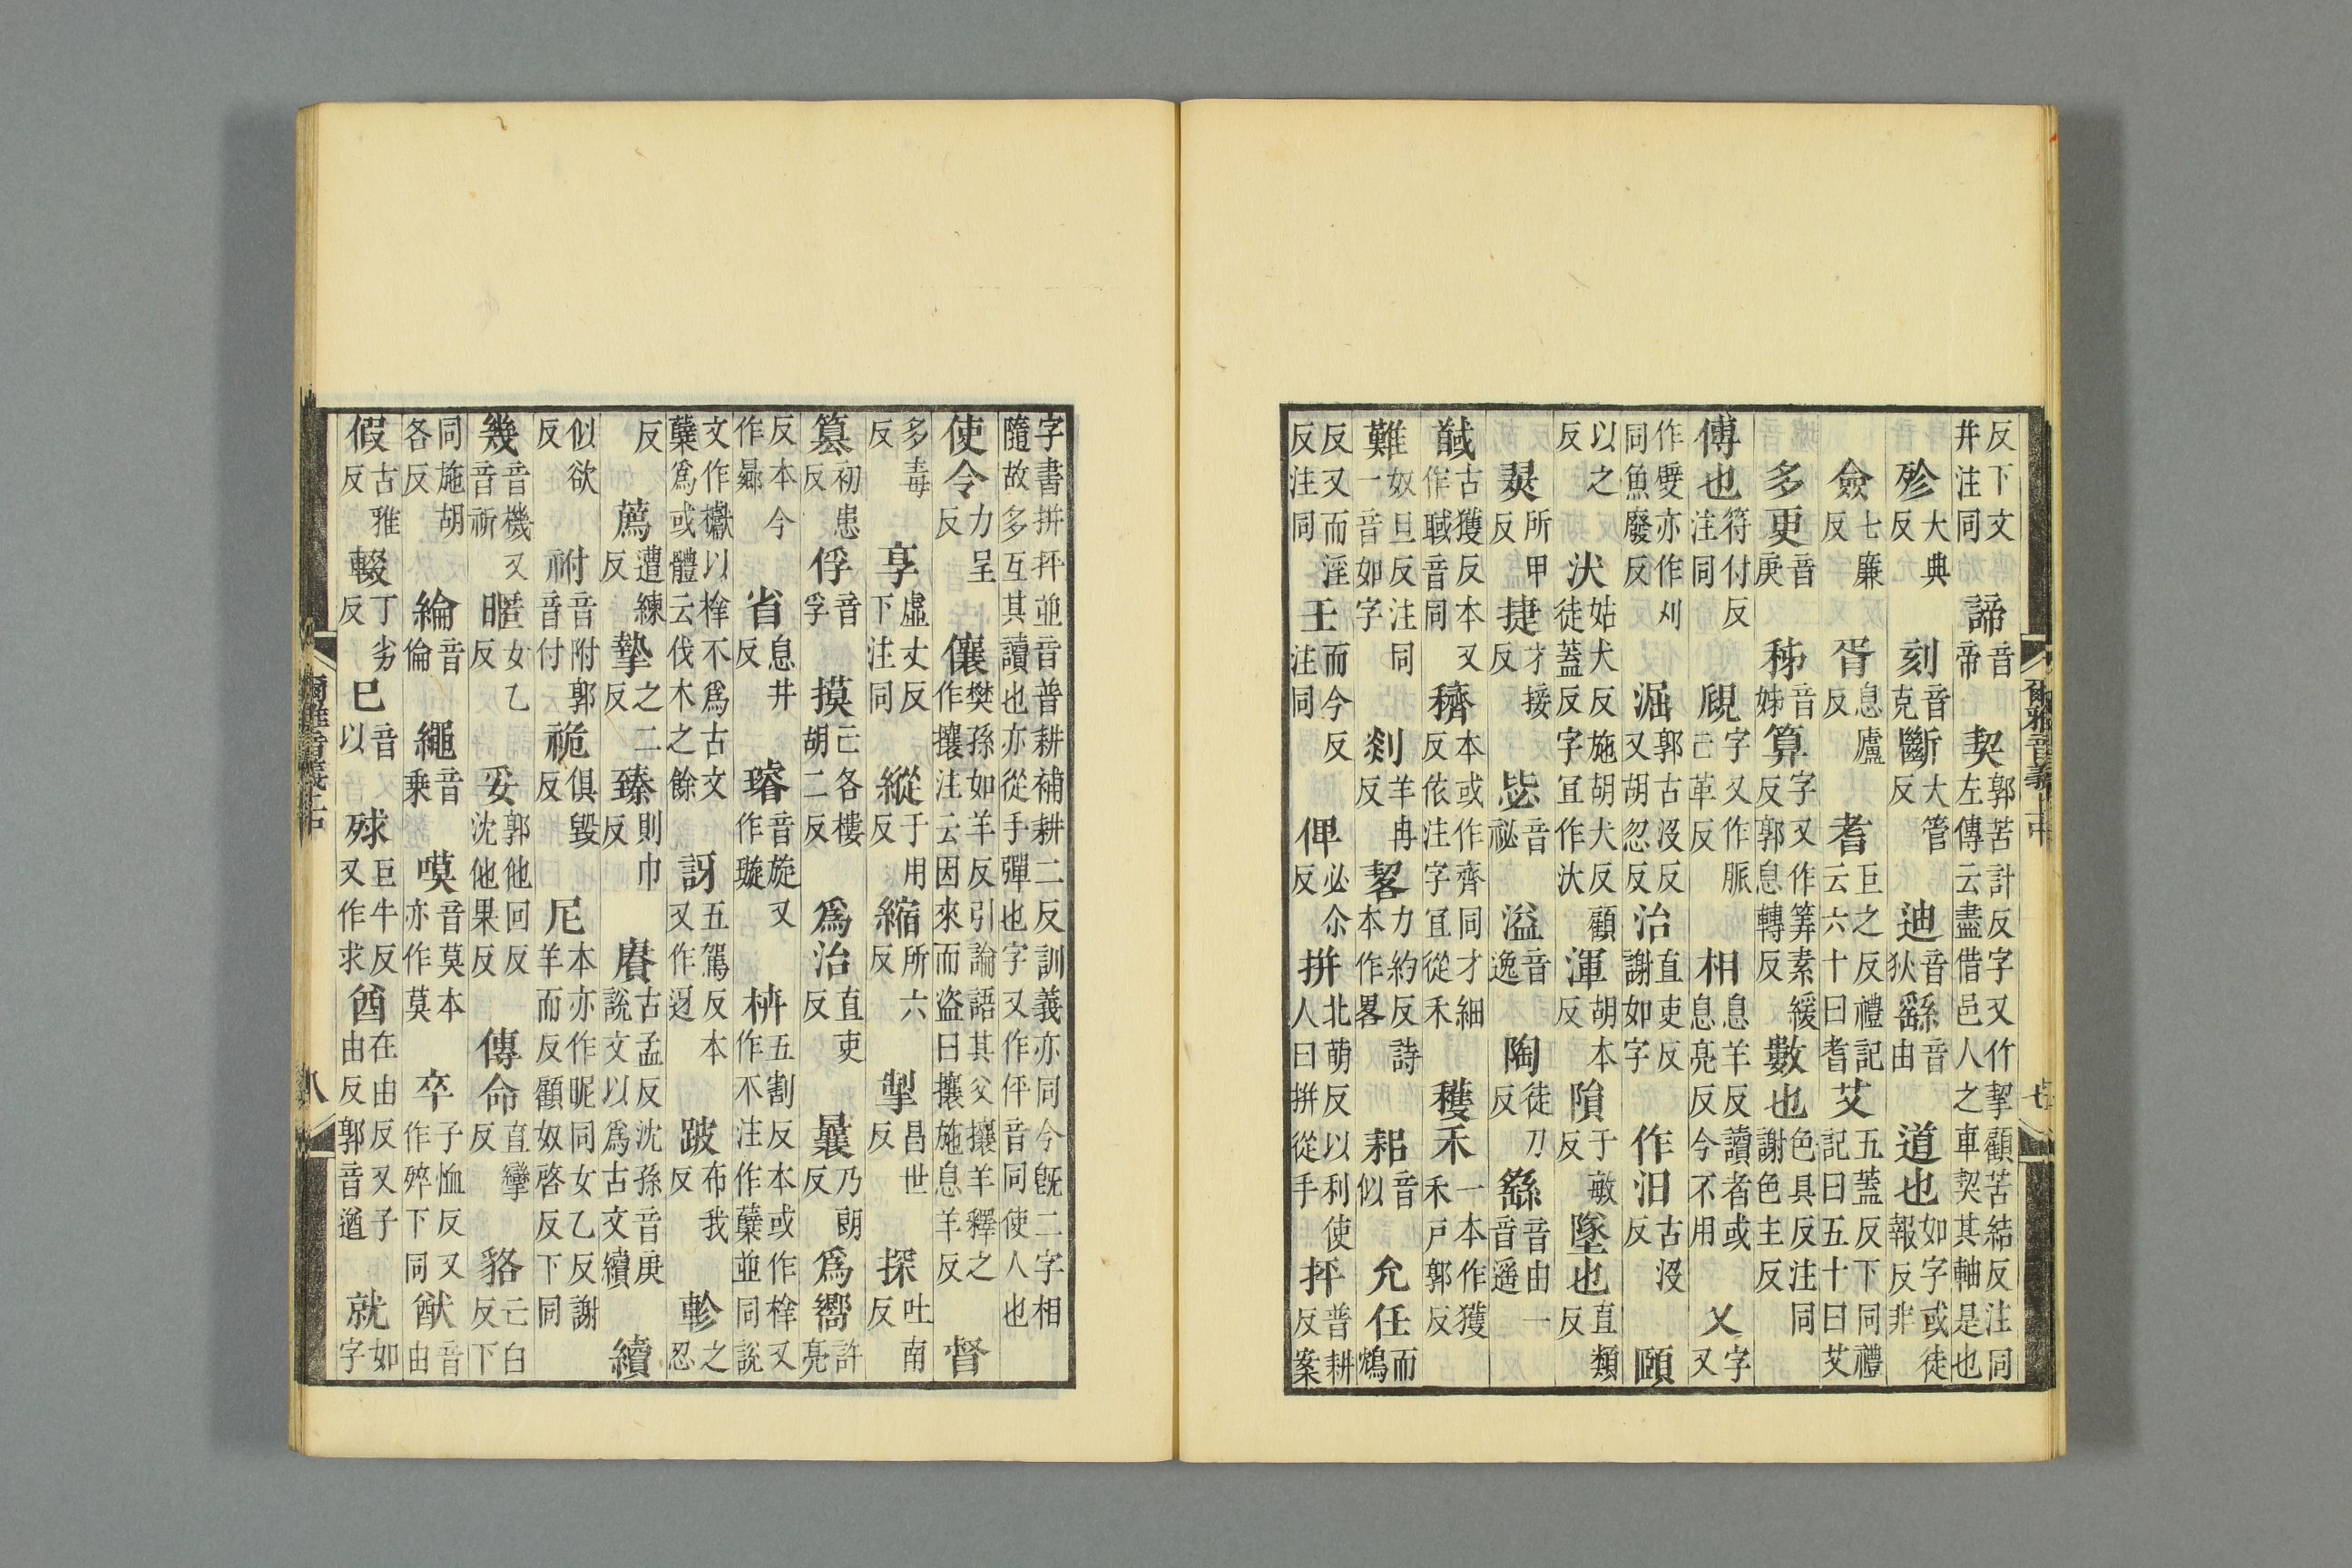 反下文井注同諦音帝契郭苦計反字又作挈顧苦結反注同左傳云盡借邑人之車契其軸是也
殄大典反刻音克斷大管反迪音狄繇音由道也如字或徒報反非
僉七廉反胥息廬反耆巨之反禮記云六十曰耆艾五蓋反下同禮記曰五十曰艾
多更音庚秭音姊算字又作筭素緩反郭息轉反數也色具反注同謝色主反
傅也符付反注同覛字又作脈亡革反相息羊反讀者或息亮反今不用乂字又
作㜸亦作刈同魚廢反淈郭古沒反又胡忽反治直吏反謝如字作汩古沒反頤
以之反汱姑犬反施胡犬反顧徒蓋反字宜作汰渾胡本反隕于敏反墜也直類反
翜所甲反捷才接反毖音祕溢音逸陶徒刀反繇音由一音遥
馘古獲反本又作聝音同穧本或作齊同才細反依注字宜從禾穫禾一本作獲禾戶郭反
難奴旦反注同一音如字剡羊冉反䂮力約反詩本作畧耜音似允任而鴆
反又而淫反注同壬而今反注同俾必尒反拼北萌反以利使人曰拼從手抨普耕反案
爾雅音義上中
七
字書拼抨並音普耕補耕二反訓義亦同今旣二字相隨故多互其讀也亦從手彈也字又作伻音同使人也
使令力呈反儴樊孫如羊反引論語其父攘羊釋之作攘注云因來而盜曰攘施息羊反督
多毒反享虛丈反下注同縱于用反縮所六反掣昌世反探吐南反
篡初患反俘音孚摸亡各樓胡二反爲治直吏反曩乃朗反爲嚮許亮
反本今作曏省息井反璿音旋又作璇枿五割反本或作㭱又作不注作蘖並同說
文作巘以㭱不爲古文蘖爲或體云伐木之餘訝五駕反本又作迓跛布我反軫之忍
反薦遭練反摯之二反臻則巾反賡古孟反沈孫音庚說文以爲古文續續
似欲反祔音附郭音付祪俱毀反尼本亦作昵同女乙反謝羊而反顧奴啓反下同
幾音機又音祈暱女乙反妥郭他回反沈他果反傳命直攣反貉亡白反下
同施胡各反綸音倫繩音乘嗼音莫本亦作莫卒子恤反又作㱖下同猷音由
假古雅反輟丁劣反已音以殏巨牛反又作求酋在由反又子由反郭音遒就如字
爾雅音義上中
八